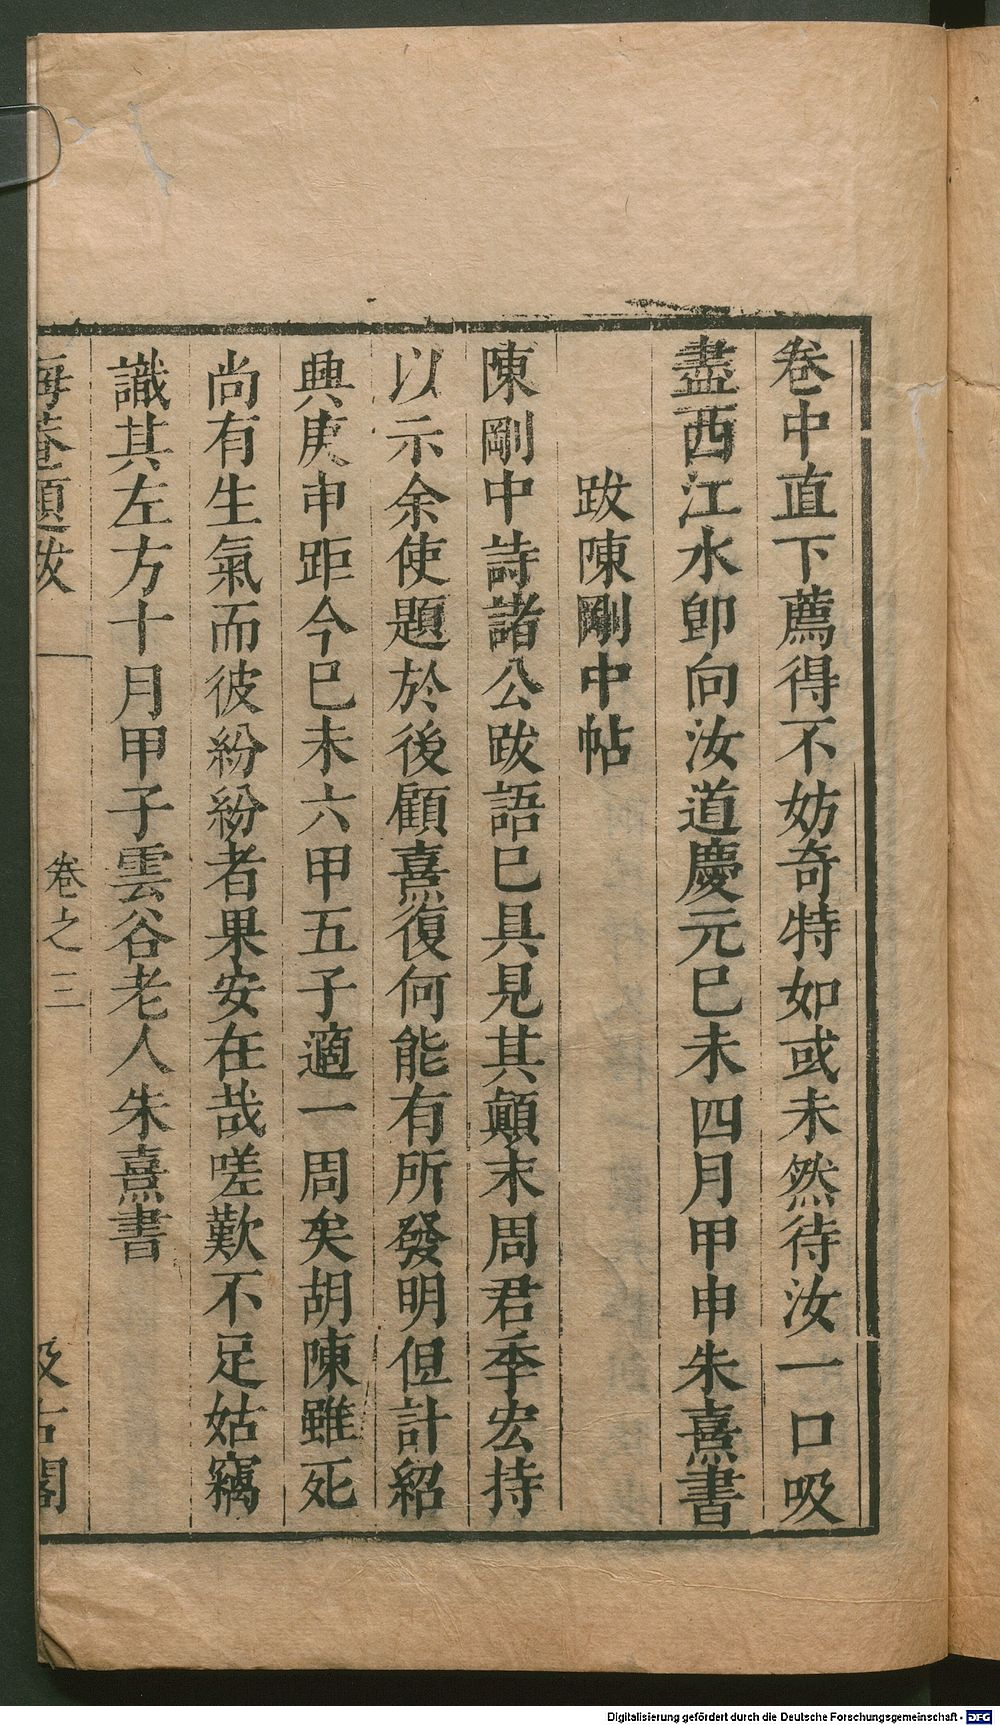 卷中直下薦得不妨奇特如或未然待汝一口吸
盡西江水卽向汝道慶元巳未四月甲申朱熹書
跋陳剛中帖
陳剛中詩諸公跋語巳具見其顛末周君季宏持
以示余使題於後顧熹復何能有所發明但計紹
興庚申距今巳未六甲五子適一周矣胡陳雖死
尚有生氣而彼紛紛者果安在哉嗟歎不足姑竊
識其左方十月甲子雲谷老人朱熹書
海菴題跋 卷之三 汲古閣
Digitalisierung gefördert durch die Deutsche Forschungsgemeinschaft - DFG